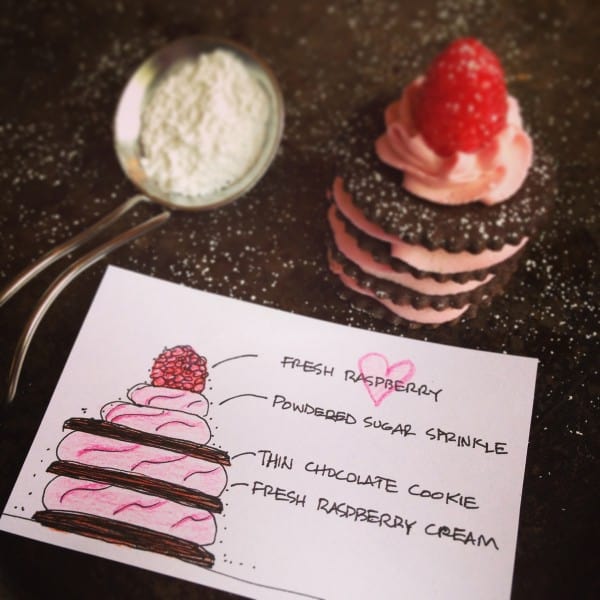 FRESH RASPBERRY
POWDERED SUGAR SPRINKLE
THIN CHOCOLATE COOKIE
FRESH RASPBERRY CREAM